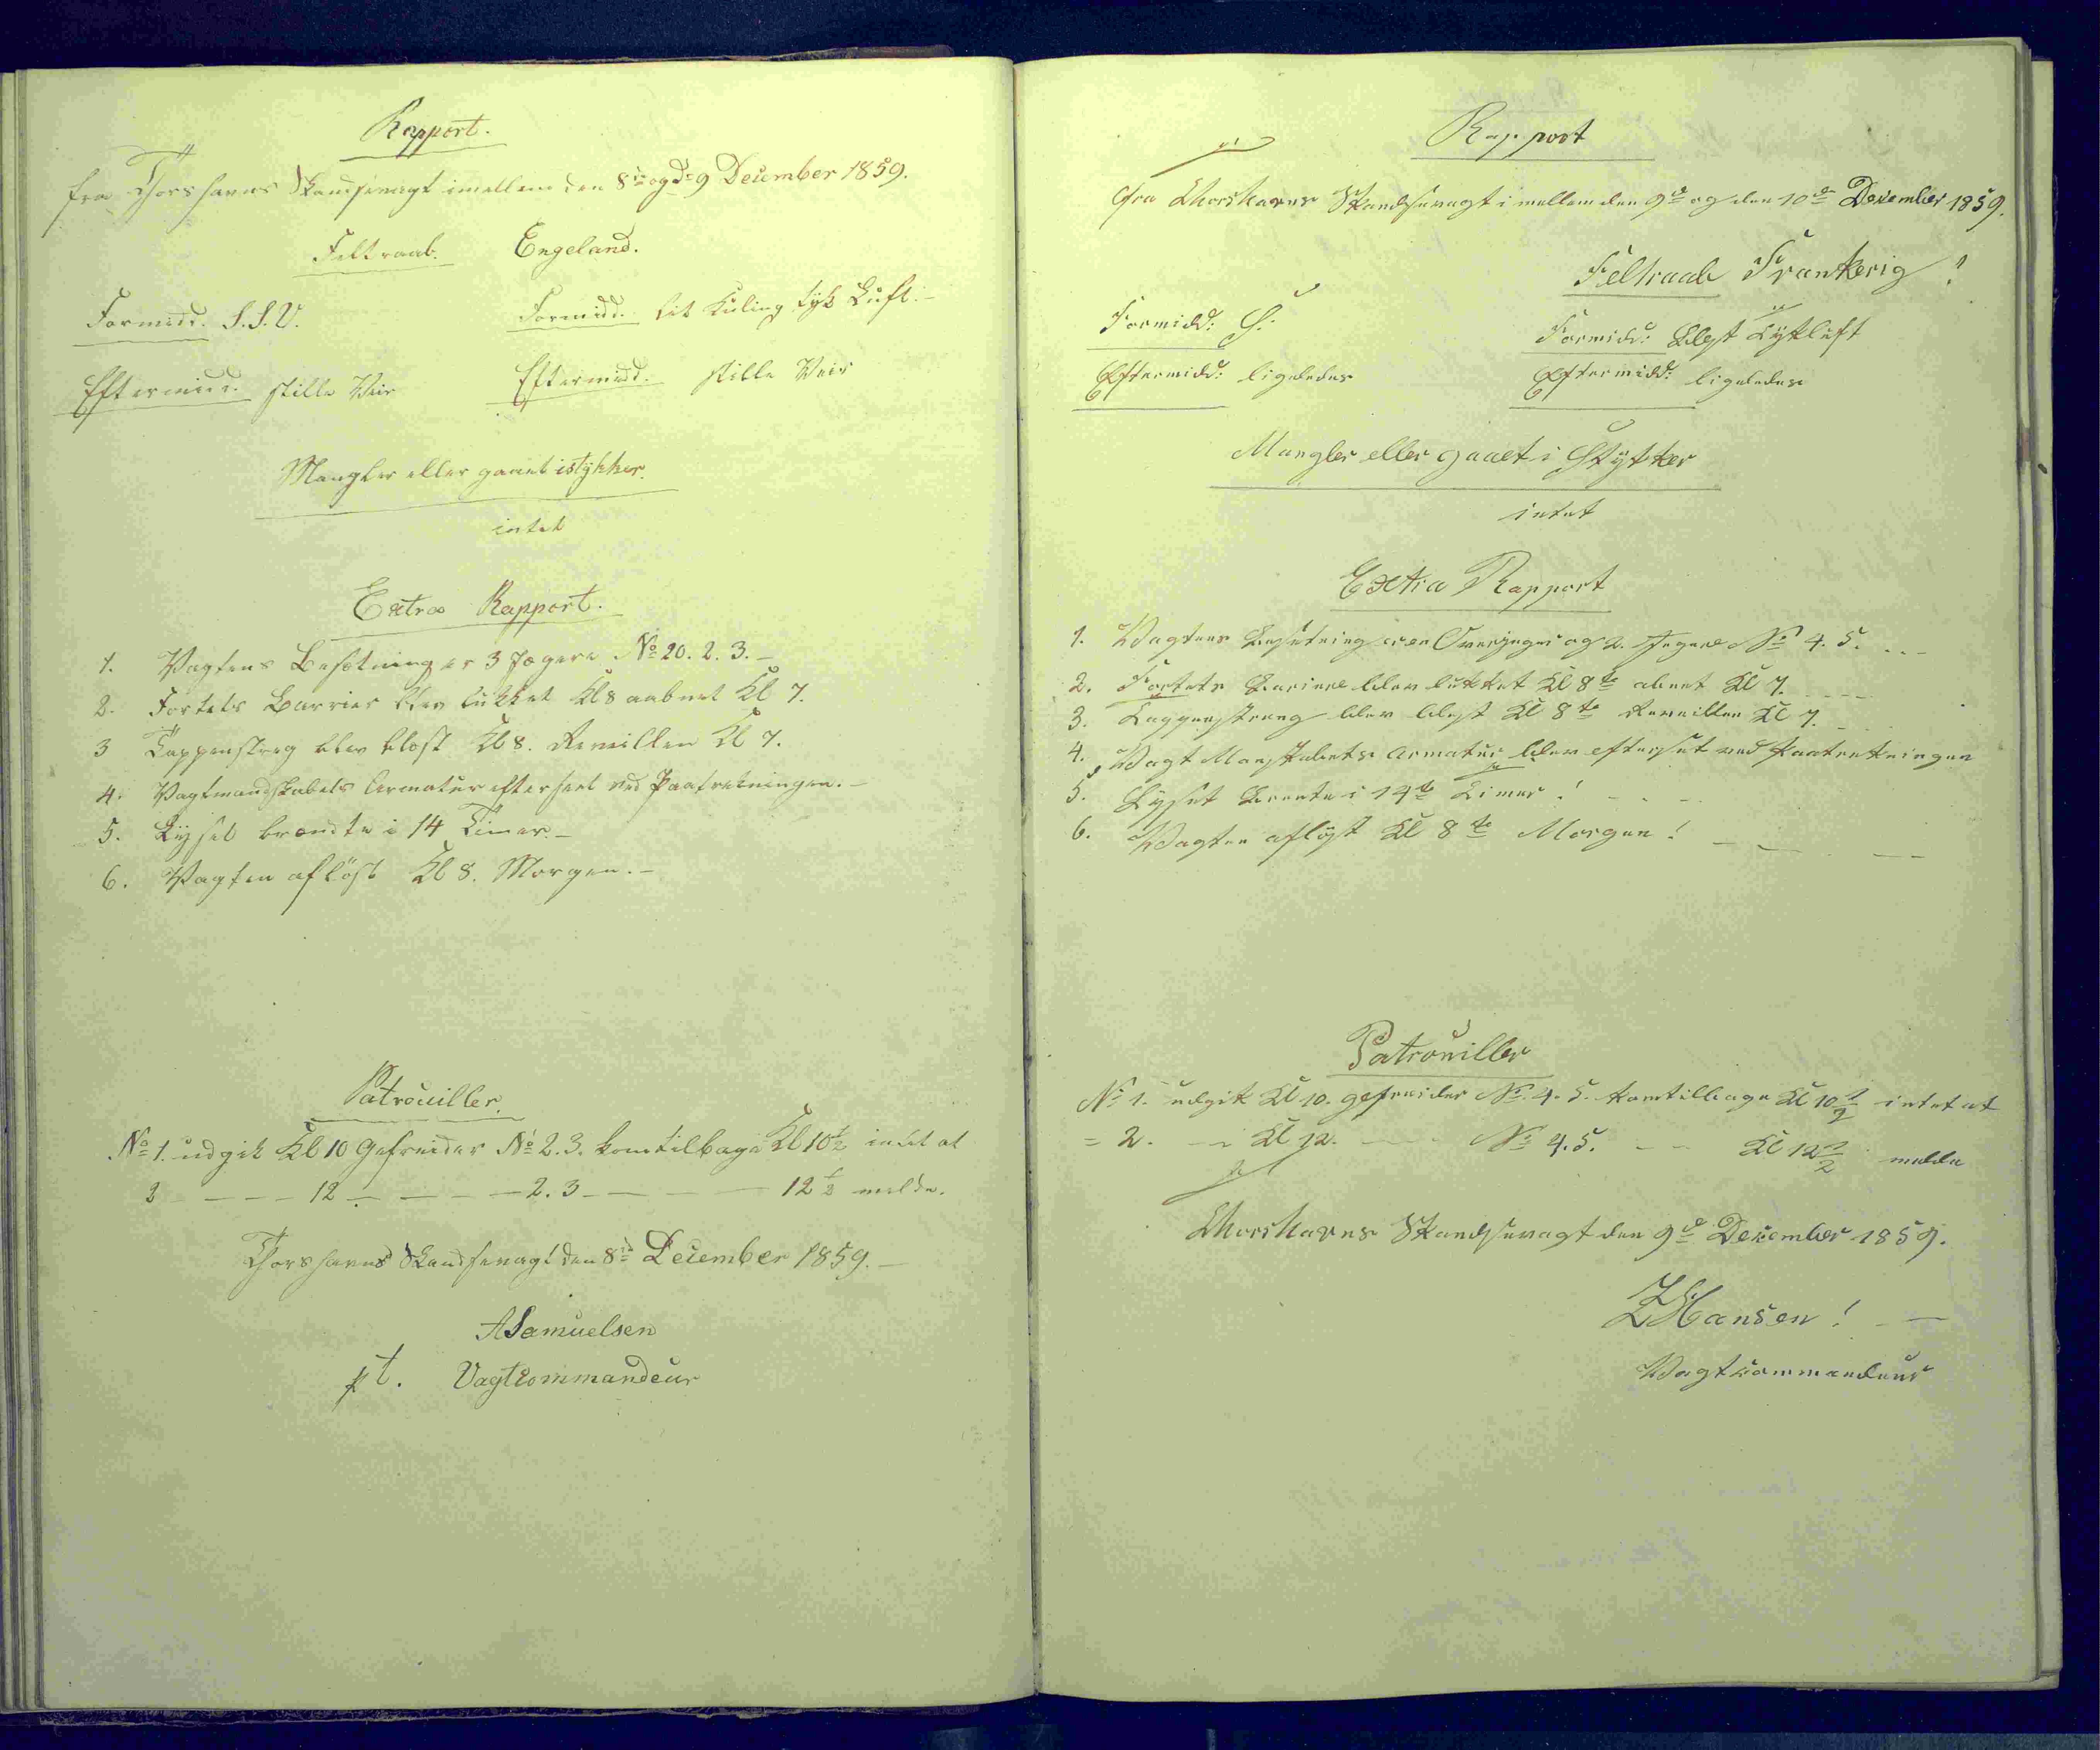 Rapport.
fra Thorshavns Skandsevagt imellem den 8de og d: 9 December 1859.
Feltraab. Engeland.
Formidd. S.S.V. Formidd. lit Kuling tyk Luft. -
Eftermidd. stille Veir Eftermidd. stille Veir
Mangler eller gaaet istykker.
intet
Extra Rapport.
1. Vagtens Besætning er 3 Jægere No 20. 2. 3. -
2. Fortets Barrier blev lukket Kl 8 aabnet Kl 7.
3 Tappenstreg blev blæst Kl 8. Reveillen Kl 7.
4. Vagtmandskabets Armatur efterseet ved Paatrædningen. -
5. Lyset brændte i 14 Timer. -
6. Vagten afløst Kl 8. Morgen. -
Patrouiller.
No 1. udgik Kl 10 Gefreider No 2. 3. kom tilbage Kl 10 1/2 intet at
2 - - - - 12 - - - - 2. 3 - - - - 12 1/2 melde.
Thorshavns Skandsevagt den 8de December 1859. -
A Samuelsen
pt. Vagtcommandeur
Rapport
fra Thorshavns Skandsevagt i mellem den 9de og den 10de December 1859.
Feltraab Frankerig !
Formidd: S: Formidd: Blæst Tykluft
Eftermidd: ligeledes Eftermidd: ligeledes
Mangler eller gaaet i Stykker
intet
Extra Rapport
1. Vagtens Besetning er en Overjeger og 2. Jegere No 4. 5. - - -
2. Fortets Bariere blev lukket Kl 8te abnet Kl 7. - - - -
3. Tappenstreng blev blest Kl 8te Reveillen Kl 7.
4. Vagt Manskabets Armatur blev efterset ved Paatretningen
5. Lyset Brente i 14te Timer ! - - -
6. Vagten afløst Kl 8te Morgen ! - - - -
Patrouiller
No 1. udgik Kl 10. gefreider No. 4. 5. komtilbage Kl 10 1/2 intet at
= 2. - - Kl 12. - - - No 4. 5. - - Kl 12 1/2 melde
Thorshavns Skandsevagt den 9de December 1859.
Z Hansen ! - -
Vagtcommandeur